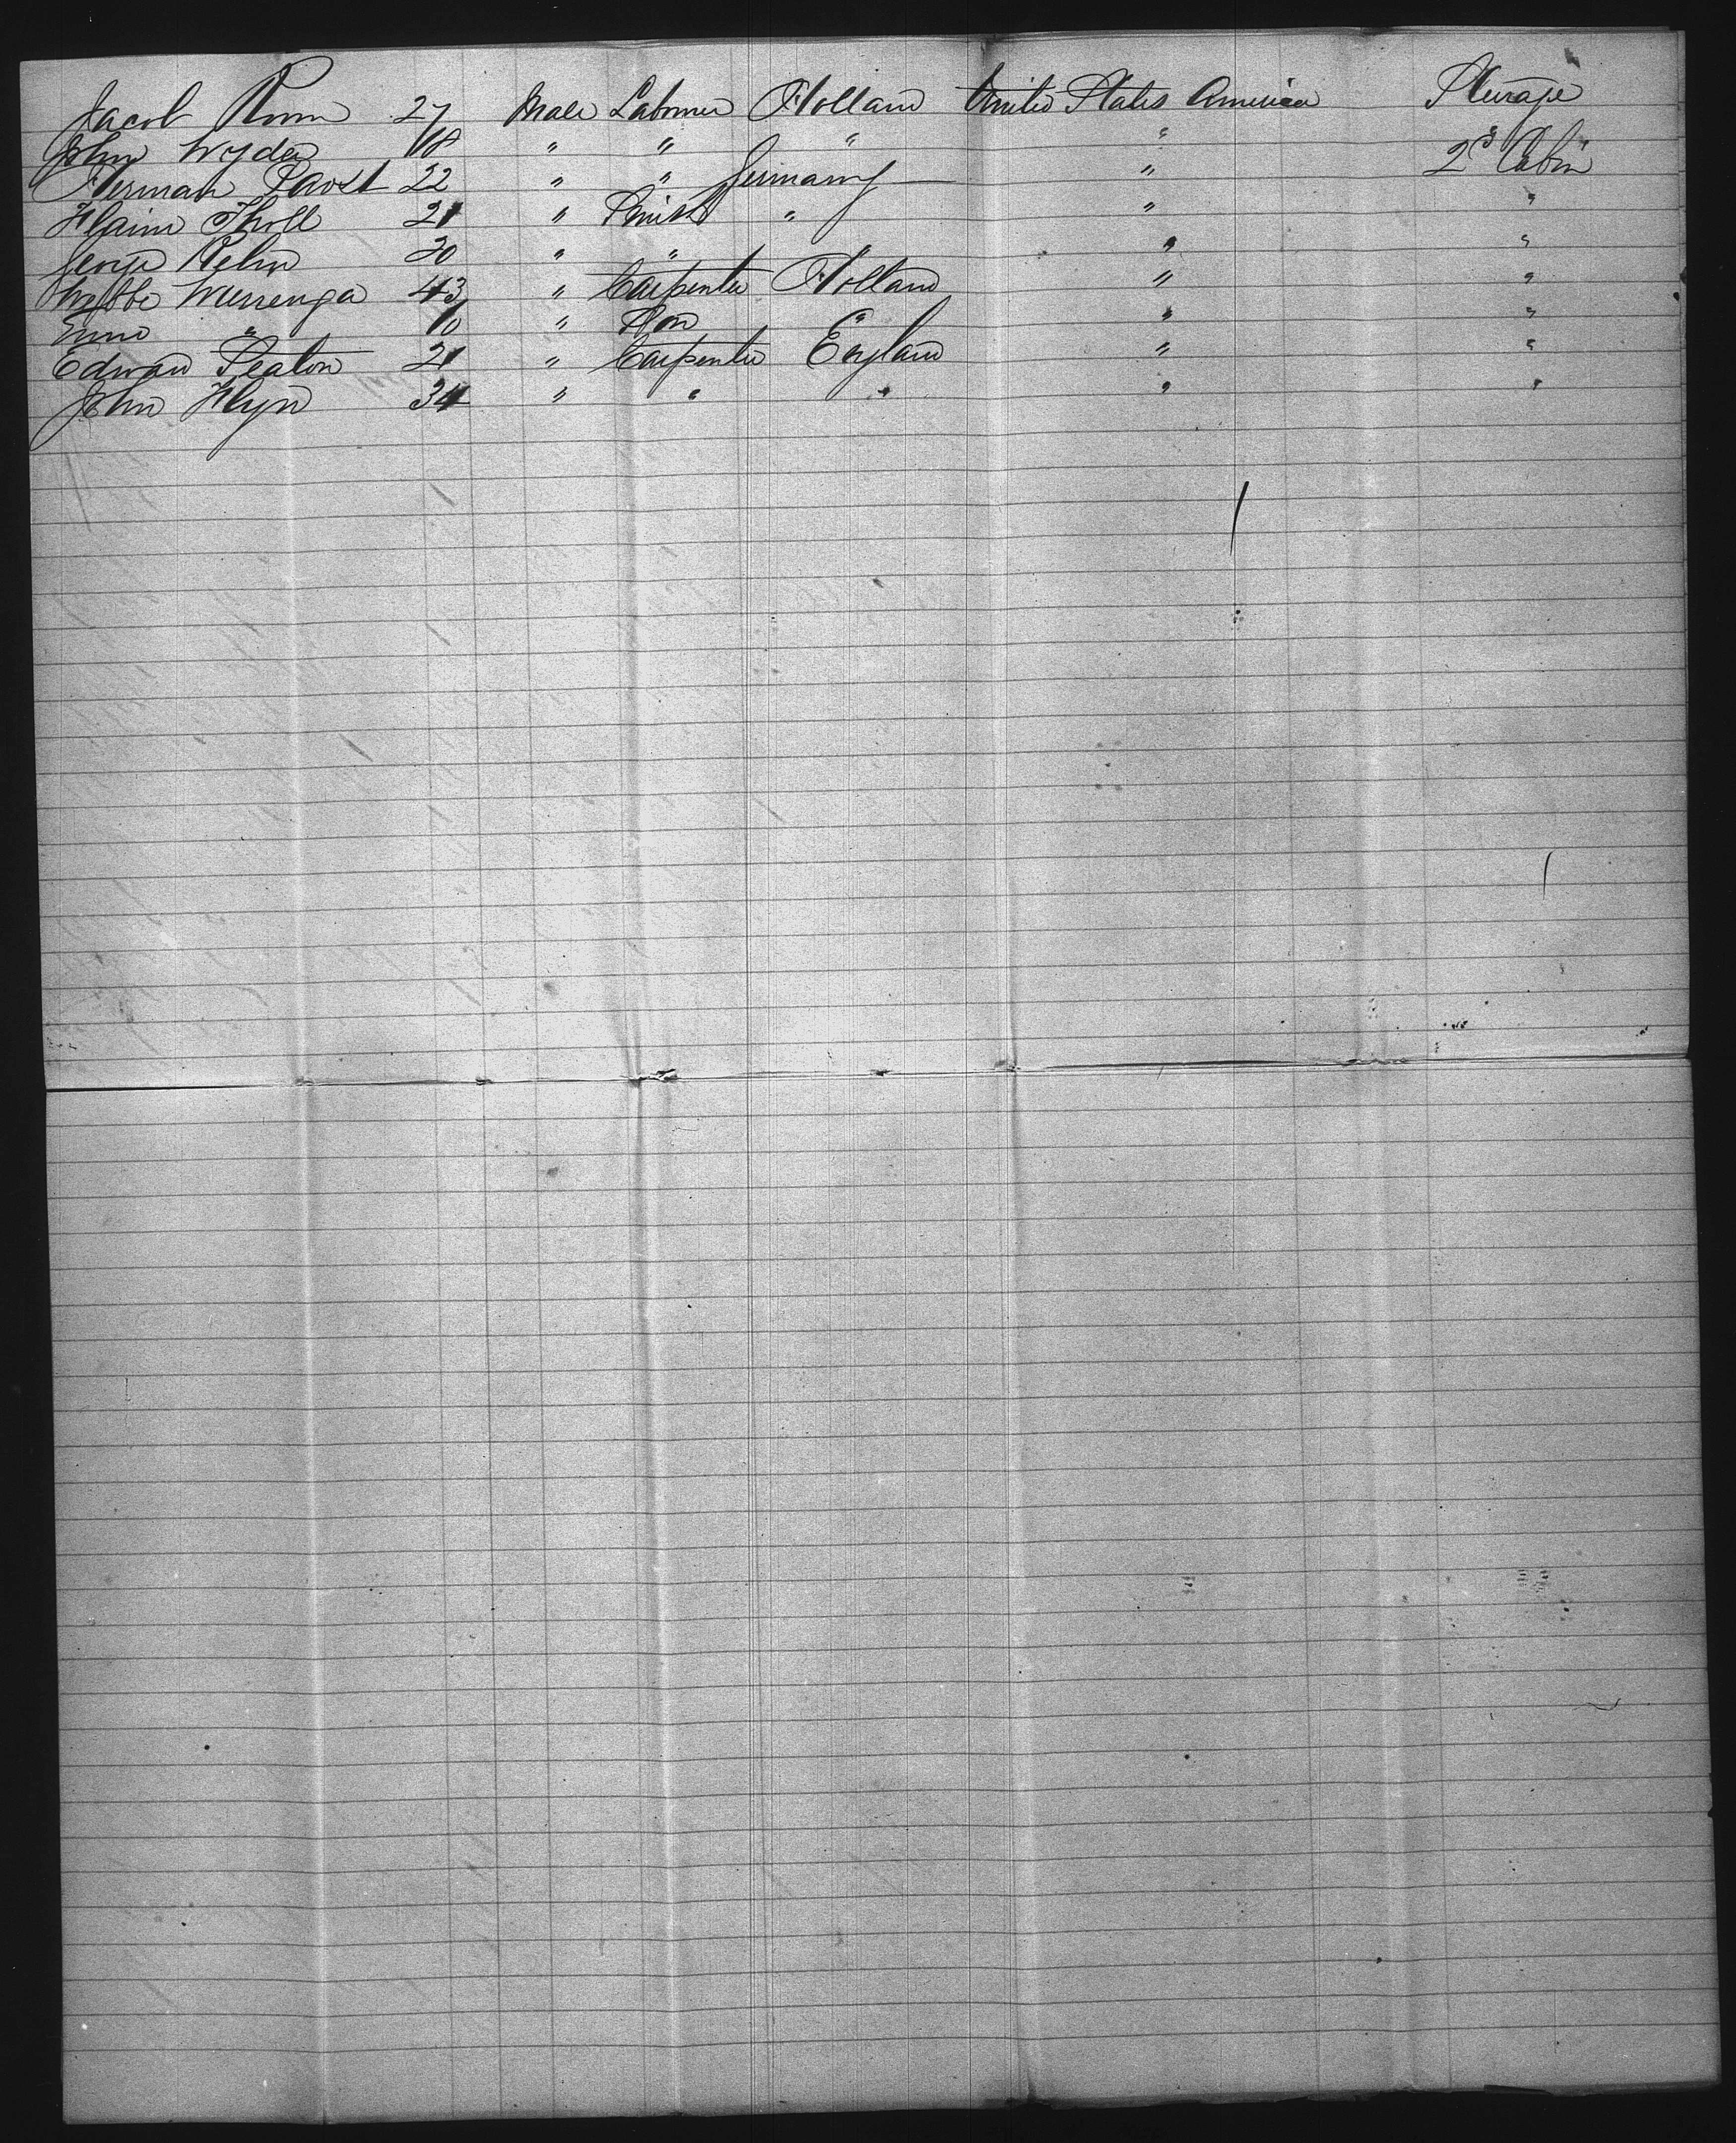 Jacob Room 27 Male Laborer Holland United States America Steerage
John Wyder 18 " " " " "
Herman Pavst 22 " " Germany " 2d Cabin
21 " Smith " " "
George Rehn 20 " " " "
Wubbe Wessenga 43 " Carpenter Holland " "
Enno " 10 " Son " " "
Edward Seaton 21 " Carpenter England " "
John Flyn 34 " " " " "